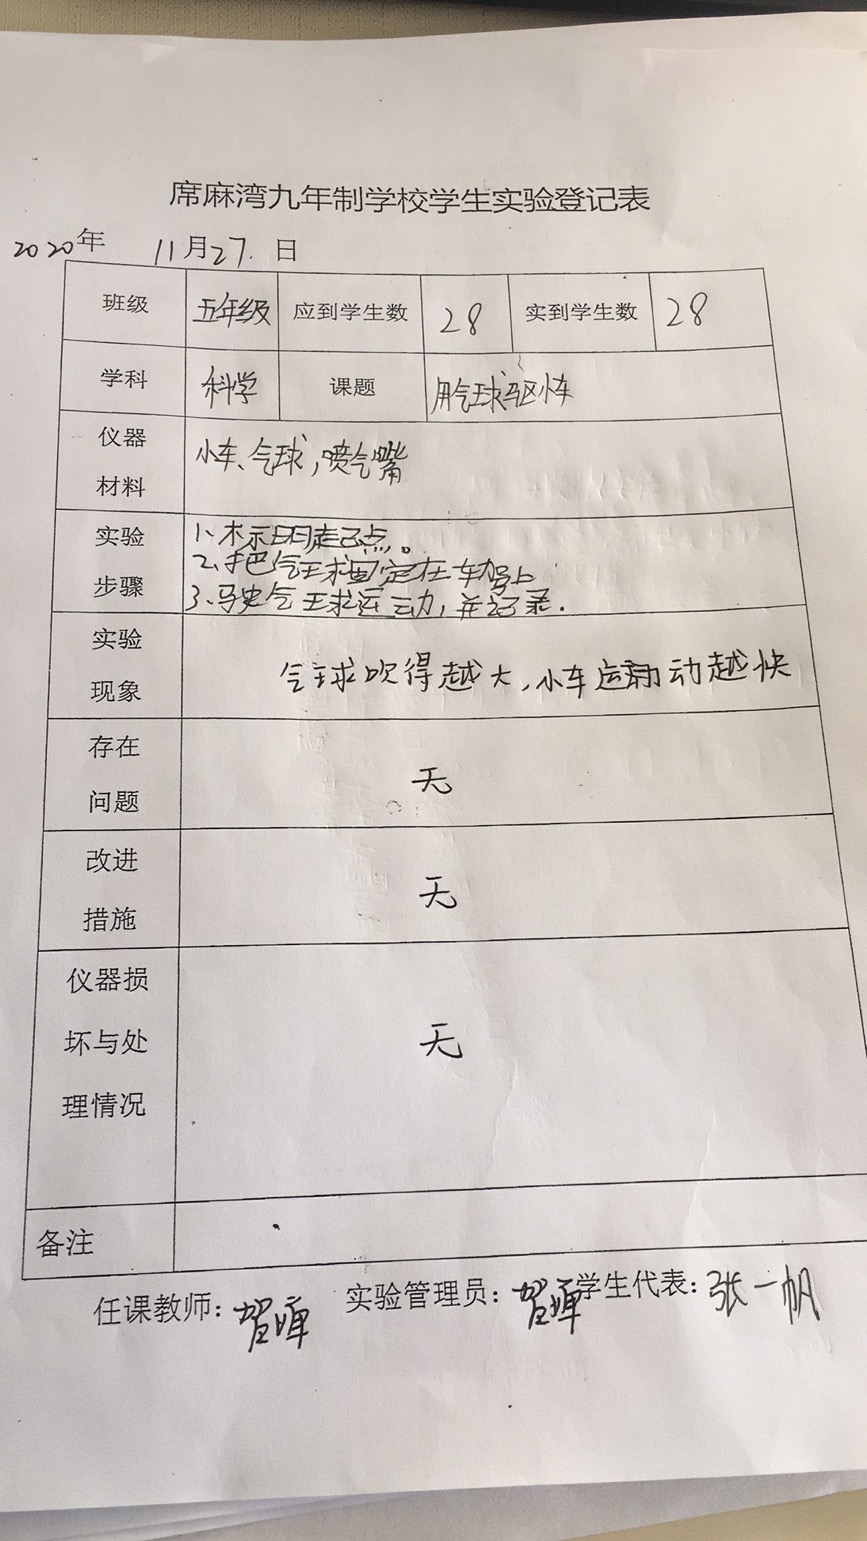 席麻湾九年制学校学生实验登记表
2020年 11月27.日
班级 五年级 应到学生数 28 实到学生数 28
学科 科学 课题 用气球驱小车
仪器
材料
小车、气球,喷气嘴
实验
步骤
1、标明起点。
2、把气球固定在车驾上
3、马史气球运动,并记录.
实验
现象
气球吹得越大,小车运动越快
存在
问题
无
改进
措施
无
仪器损
坏与处
理情况
无
备注
任课教师: 贺 实验管理员: 贺 学生代表: 张一帆